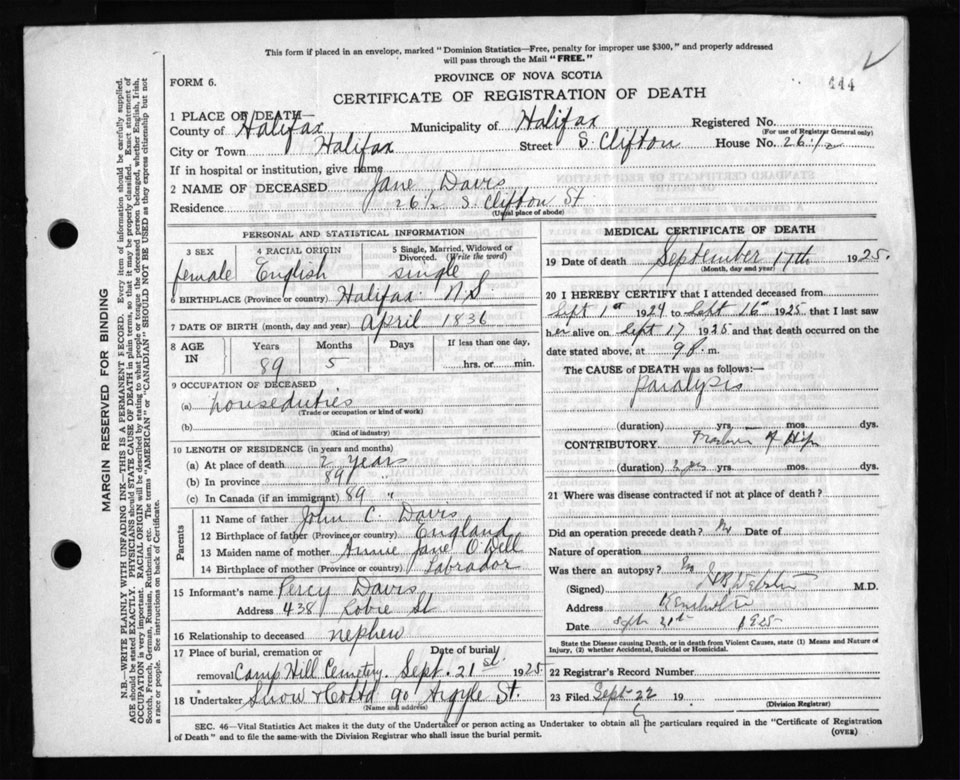 This form if placed in an envelope, marked "Dominion Statistics—Free, penalty for improper use $300," and properly addressed
will pass through the Mail "FREE."
FORM 6.
PROVINCE OF NOVA SCOTIA
444
CERTIFICATE OF REGISTRATION OF DEATH
1 PLACE OF DEATH—
County of Halifax Municipality of Halifax Registered No.
(For use of Registrar General only)
City or Town Halifax Street S. Clifton House No. 26 1/2
If in hospital or institution, give name
2 NAME OF DECEASED Jane Davis
Residence 26½ S. Clifton St
(Usual place of abode)
PERSONAL AND STATISTICAL INFORMATION
3 SEX 4 RACIAL ORIGIN 5 Single, Married, Widowed or
Divorced. (Write the word)
female English single
6 BIRTHPLACE (Province or country) Halifax N.S
7 DATE OF BIRTH (month, day and year) April 1836
8 AGE IN Years Months Days If less than one day,
89 5 hrs. or min.
9 OCCUPATION OF DECEASED
(a) houseduties
(Trade or occupation or kind of work)
(b)
(Kind of industry)
10 LENGTH OF RESIDENCE (in years and months)
(a) At place of death 2 years
(b) In province 89 "
(c) In Canada (if an immigrant) 89 "
Parents
11 Name of father John C. Davis
12 Birthplace of father (Province or country) England
13 Maiden name of mother Annie Jane O'Dell
14 Birthplace of mother (Province or country) Labrador
15 Informant's name Percy Davis
Address 438 Robie St
16 Relationship to deceased nephew
17 Place of burial, cremation or Date of burial
removal Camp Hill Cemetery. Sept. 21st. 1925
18 Undertaker Snow & Co Ltd 90 Argyle St.
(Name and address)
MEDICAL CERTIFICATE OF DEATH
19 Date of death September 17th 1925.
(Month, day and year)
20 I HEREBY CERTIFY that I attended deceased from
Sept 1st 1924 to Sept 16th 1925 that I last saw
her alive on Sept 17 1925 and that death occurred on the
date stated above, at 9 P. m.
The CAUSE of DEATH was as follows:—
paralysis
(duration) yrs. mos. dys.
CONTRIBUTORY Fracture of Hip
(duration) 2 yrs yrs. mos. dys.
21 Where was disease contracted if not at place of death?
Did an operation precede death? No Date of
Nature of operation
Was there an autopsy? No
(Signed) Webster M.D.
Address
Date Sept 21st 1925
State the Disease causing Death, or in death from Violent Causes, state (1) Means and Nature of
Injury, (2) whether Accidental, Suicidal or Homicidal.
22 Registrar's Record Number
23 Filed Sept 22 19
(Division Registrar)
SEC. 46—Vital Statistics Act makes it the duty of the Undertaker or person acting as Undertaker to obtain all the particulars required in the "Certificate of Registration
of Death" and to file the same with the Division Registrar who shall issue the burial permit.
(OVER)
MARGIN RESERVED FOR BINDING
N.B.—WRITE PLAINLY WITH UNFADING INK—THIS IS A PERMANENT RECORD. Every item of information should be carefully supplied.
AGE should be stated EXACTLY. PHYSICIANS should STATE CAUSE OF DEATH in plain terms, so that it may be properly classified. Exact statement of
OCCUPATION is very important. RACIAL ORIGIN will be described by stating to what people or tongue the deceased person belonged, whether English, Irish,
Scotch, French, German, Russian, Ruthenian, etc. The terms "AMERICAN" or "CANADIAN" SHOULD NOT BE USED as they express citizenship but not
a race or people. See instructions on back of Certificate.